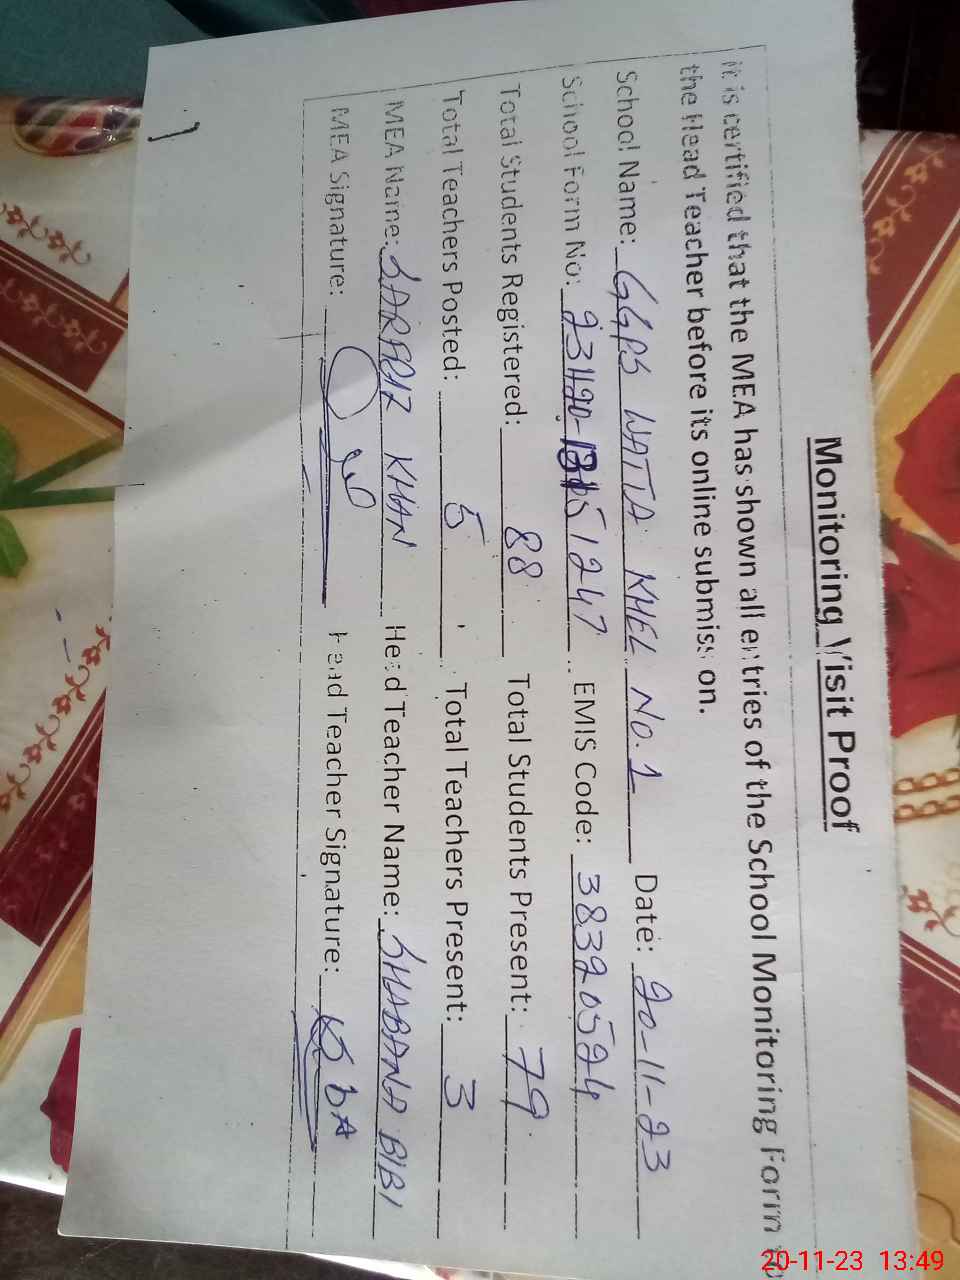 Monitoring Visit Proof
it is certified that the MEA has shown all entries of the School Monitoring Form to
the Head Teacher before its online submission.
School Name: GGPS WATTA KHEL No.1 Date: 20-11-23
School Form No: 1247 EMIS Code: 38320524
Total Students Registered: 88 Total Students Present: 79
Total Teachers Posted: 5 Total Teachers Present: 3
MEA Name: SARFRAZ KHAN Head Teacher Name: SHABANA BIBI
MEA Signature: Head Teacher Signature:
20-11-23 13:49